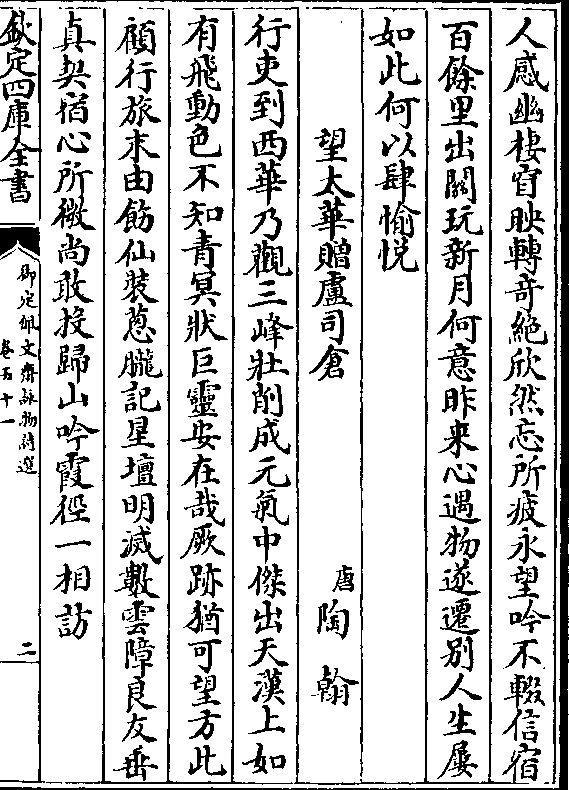 人感幽棲窅映轉奇絶欣然忘所疲永望吟不輟信宿
百餘里出關玩新月何意昨来心遇物遂遷别人生屢
如此何以肆愉悦
望太華贈盧司倉 唐 陶翰
行吏到西華乃觀三峰壯削成元氣中傑出天漢上如
有飛動色不知青冥狀巨靈安在哉厥跡猶可望方此
顧行旅末由飭仙装蔥朧記星壇明滅數雲障良友垂
真契宿心所微尚敢投歸山吟霞徑一相訪
欽定四庫全書
御定佩文齋詠物詩選
卷五十一
二